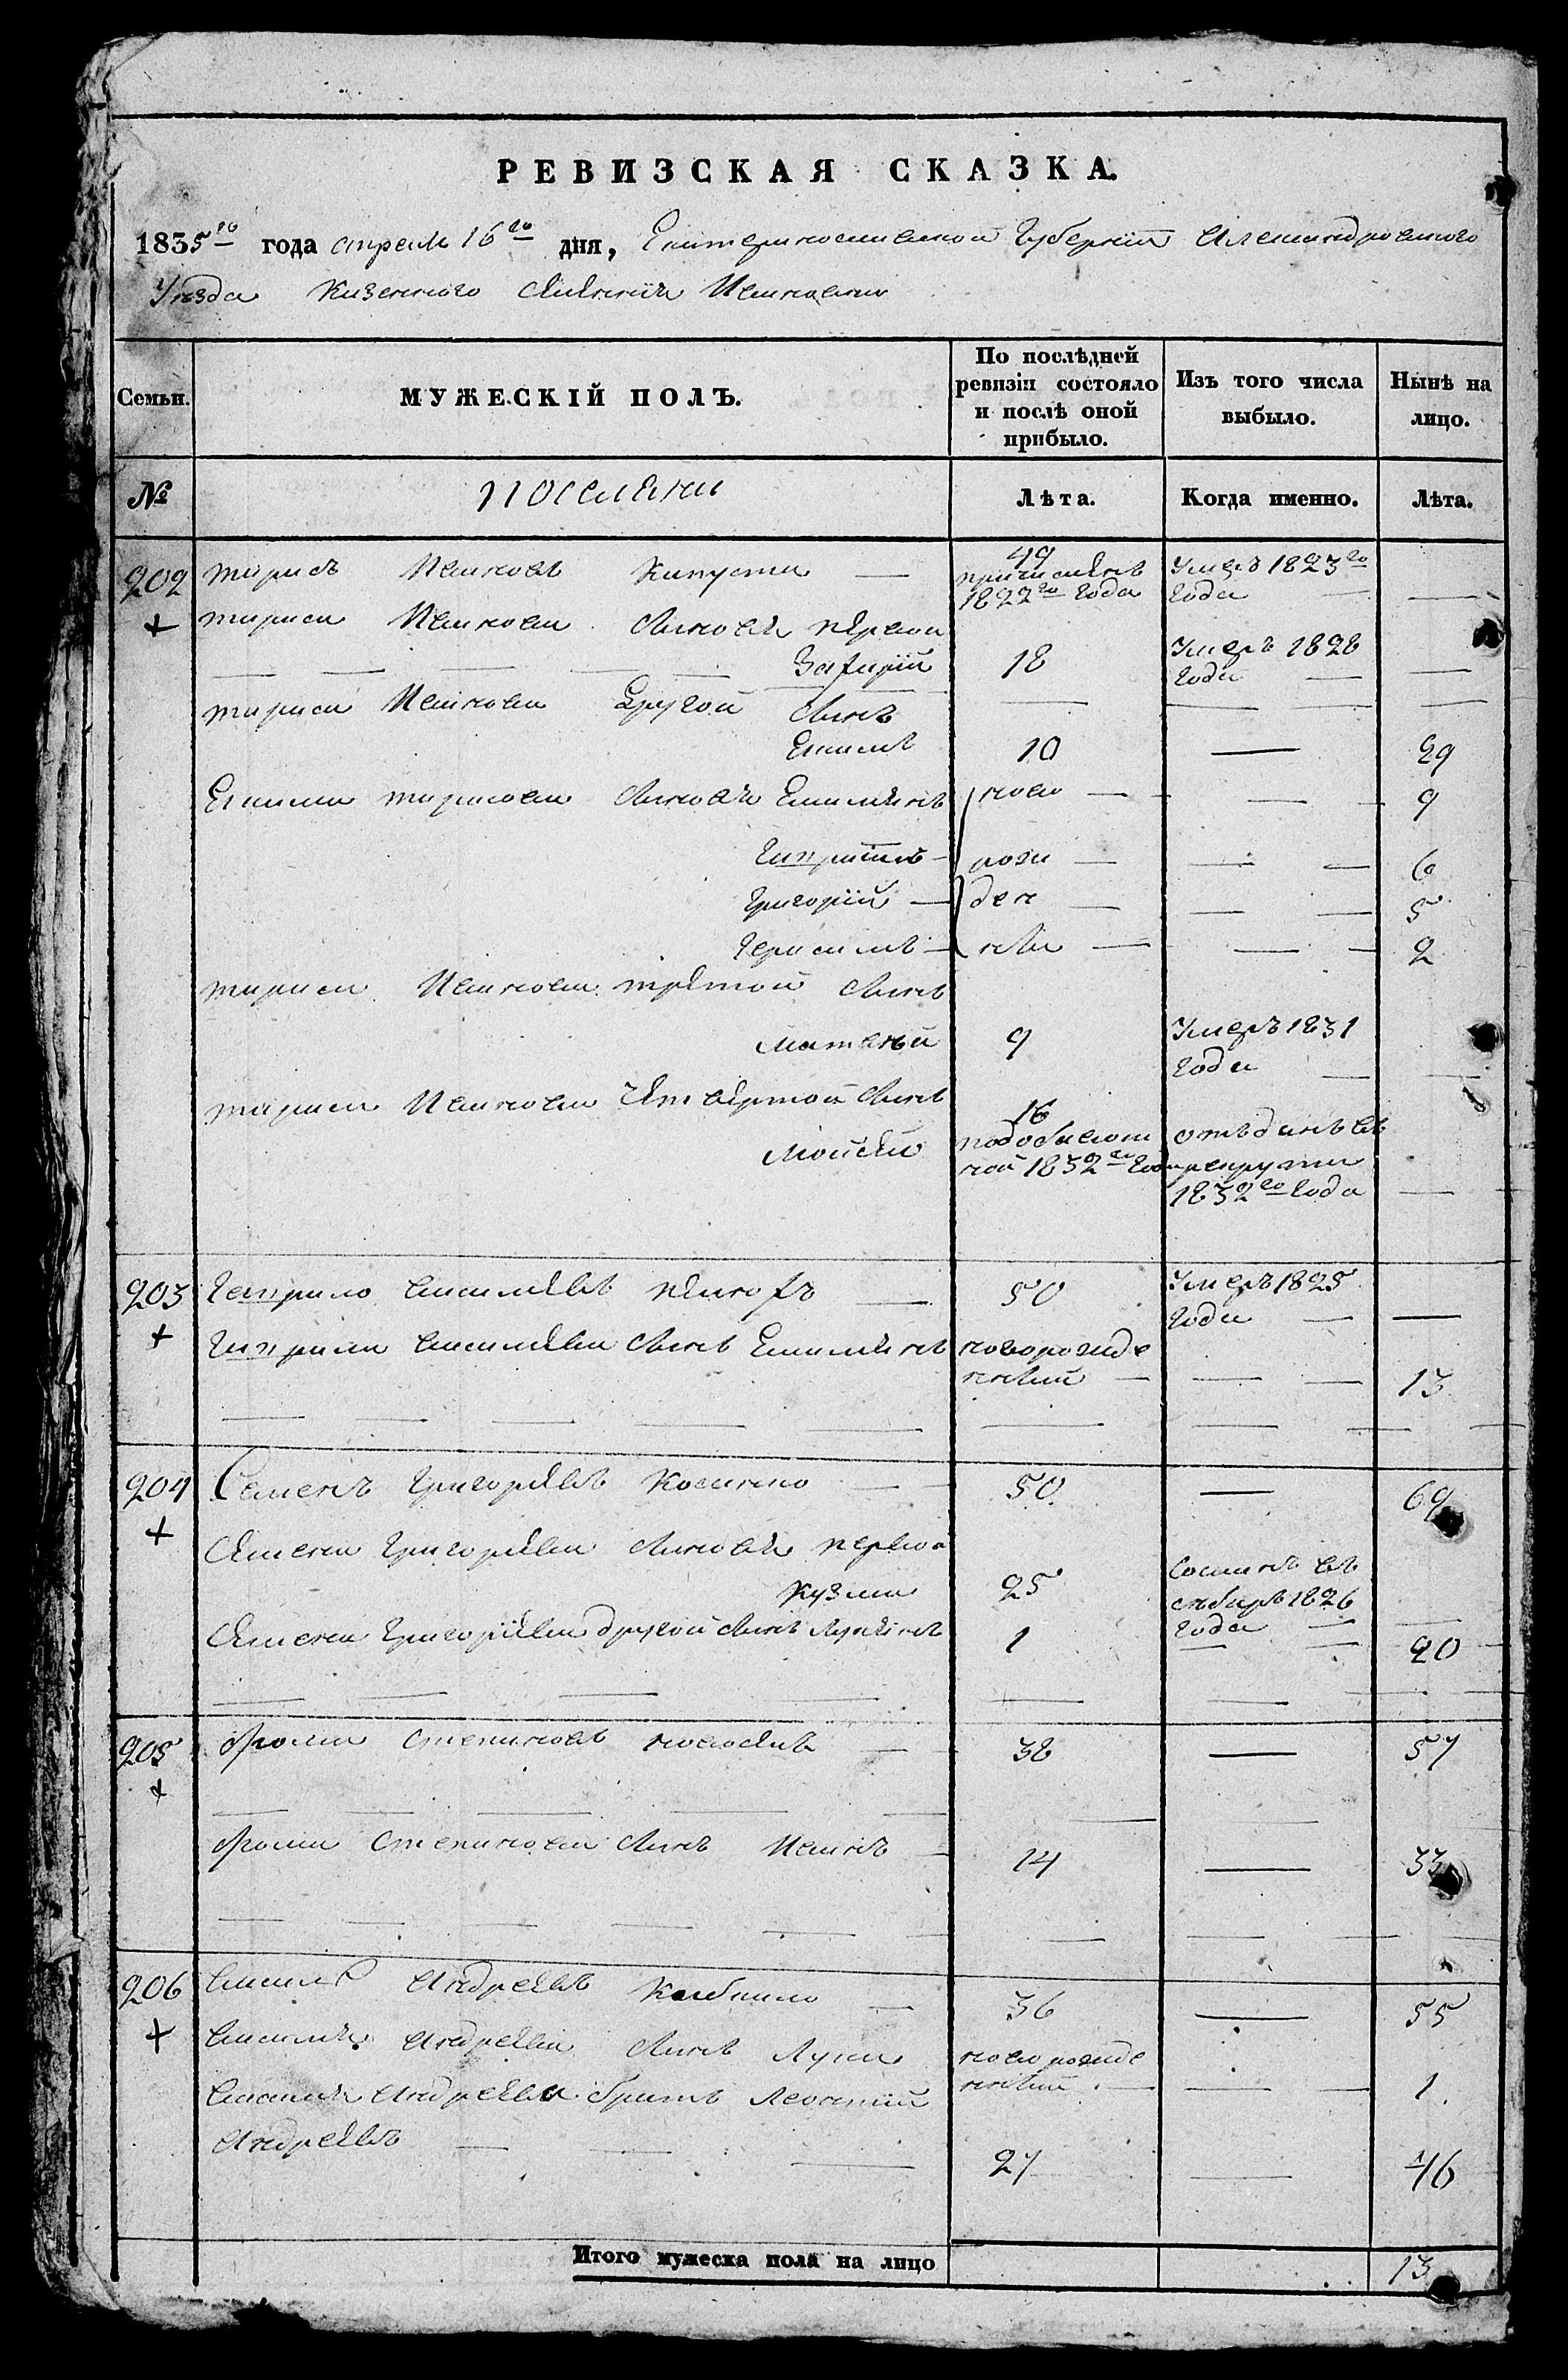 РЕВИЗСКАЯ СКАЗКА.
1835го года апреля 16го дня, Екатеринославской Губернiи Александровского
Уезда Казенного селенiя
Семьи. МУЖЕСКIЙ ПОЛЪ. По послѣдней ревизiи состояло и послѣ оной прибыло. Изъ того числа выбыло. Нынѣ на лицо.
№ поселяни Лѣта. Когда именно. Лѣта.
202 тарасъ Ивановъ Капуста — 49 причисленъ 1822го года Умеръ 1823го года —
тараса Иванова Синовя первои
Захарiй 18 Умеръ 1828 года —
тараса Иванова Другой Синъ
Екимъ 10 — 29
Екима тарасова Синовя Емилянъ ново — 9
Гаврiилъ — рож — 6
Григорiй — ден — 5
Герасимъ — ніи — 2
тараса Иванова третой Синъ
Матвей 9 Умеръ 1831 года —
тараса Иванова Четвертой Синъ
Мойсей 16 1832го года отъданъ въ рекруты 1832го года —
203 Гаврило Василевъ — 50 Умеръ 1825 года —
Гаврила Василева Синъ Емилянъ новорожденній — 13
204 Семенъ Григоревъ Косинко 50 — 69
Семена Григорева Синовя первои
Кузма 25 Сосланъ въ сибиръ 1826 года —
Семена Григорiева другой Синъ Лукянъ 1 — 20
205 Фома Степановъ — 38 — 57
Фоми Степанова Синъ Иванъ 14 — 33
206 Василь Андреевъ — 36 — 55
Василя Андреева Синъ Лука новорожденній — 1
Василя Андреева братъ Леонтий
Андреевъ 27 — 46
Итого мужеска пола на лицо 13